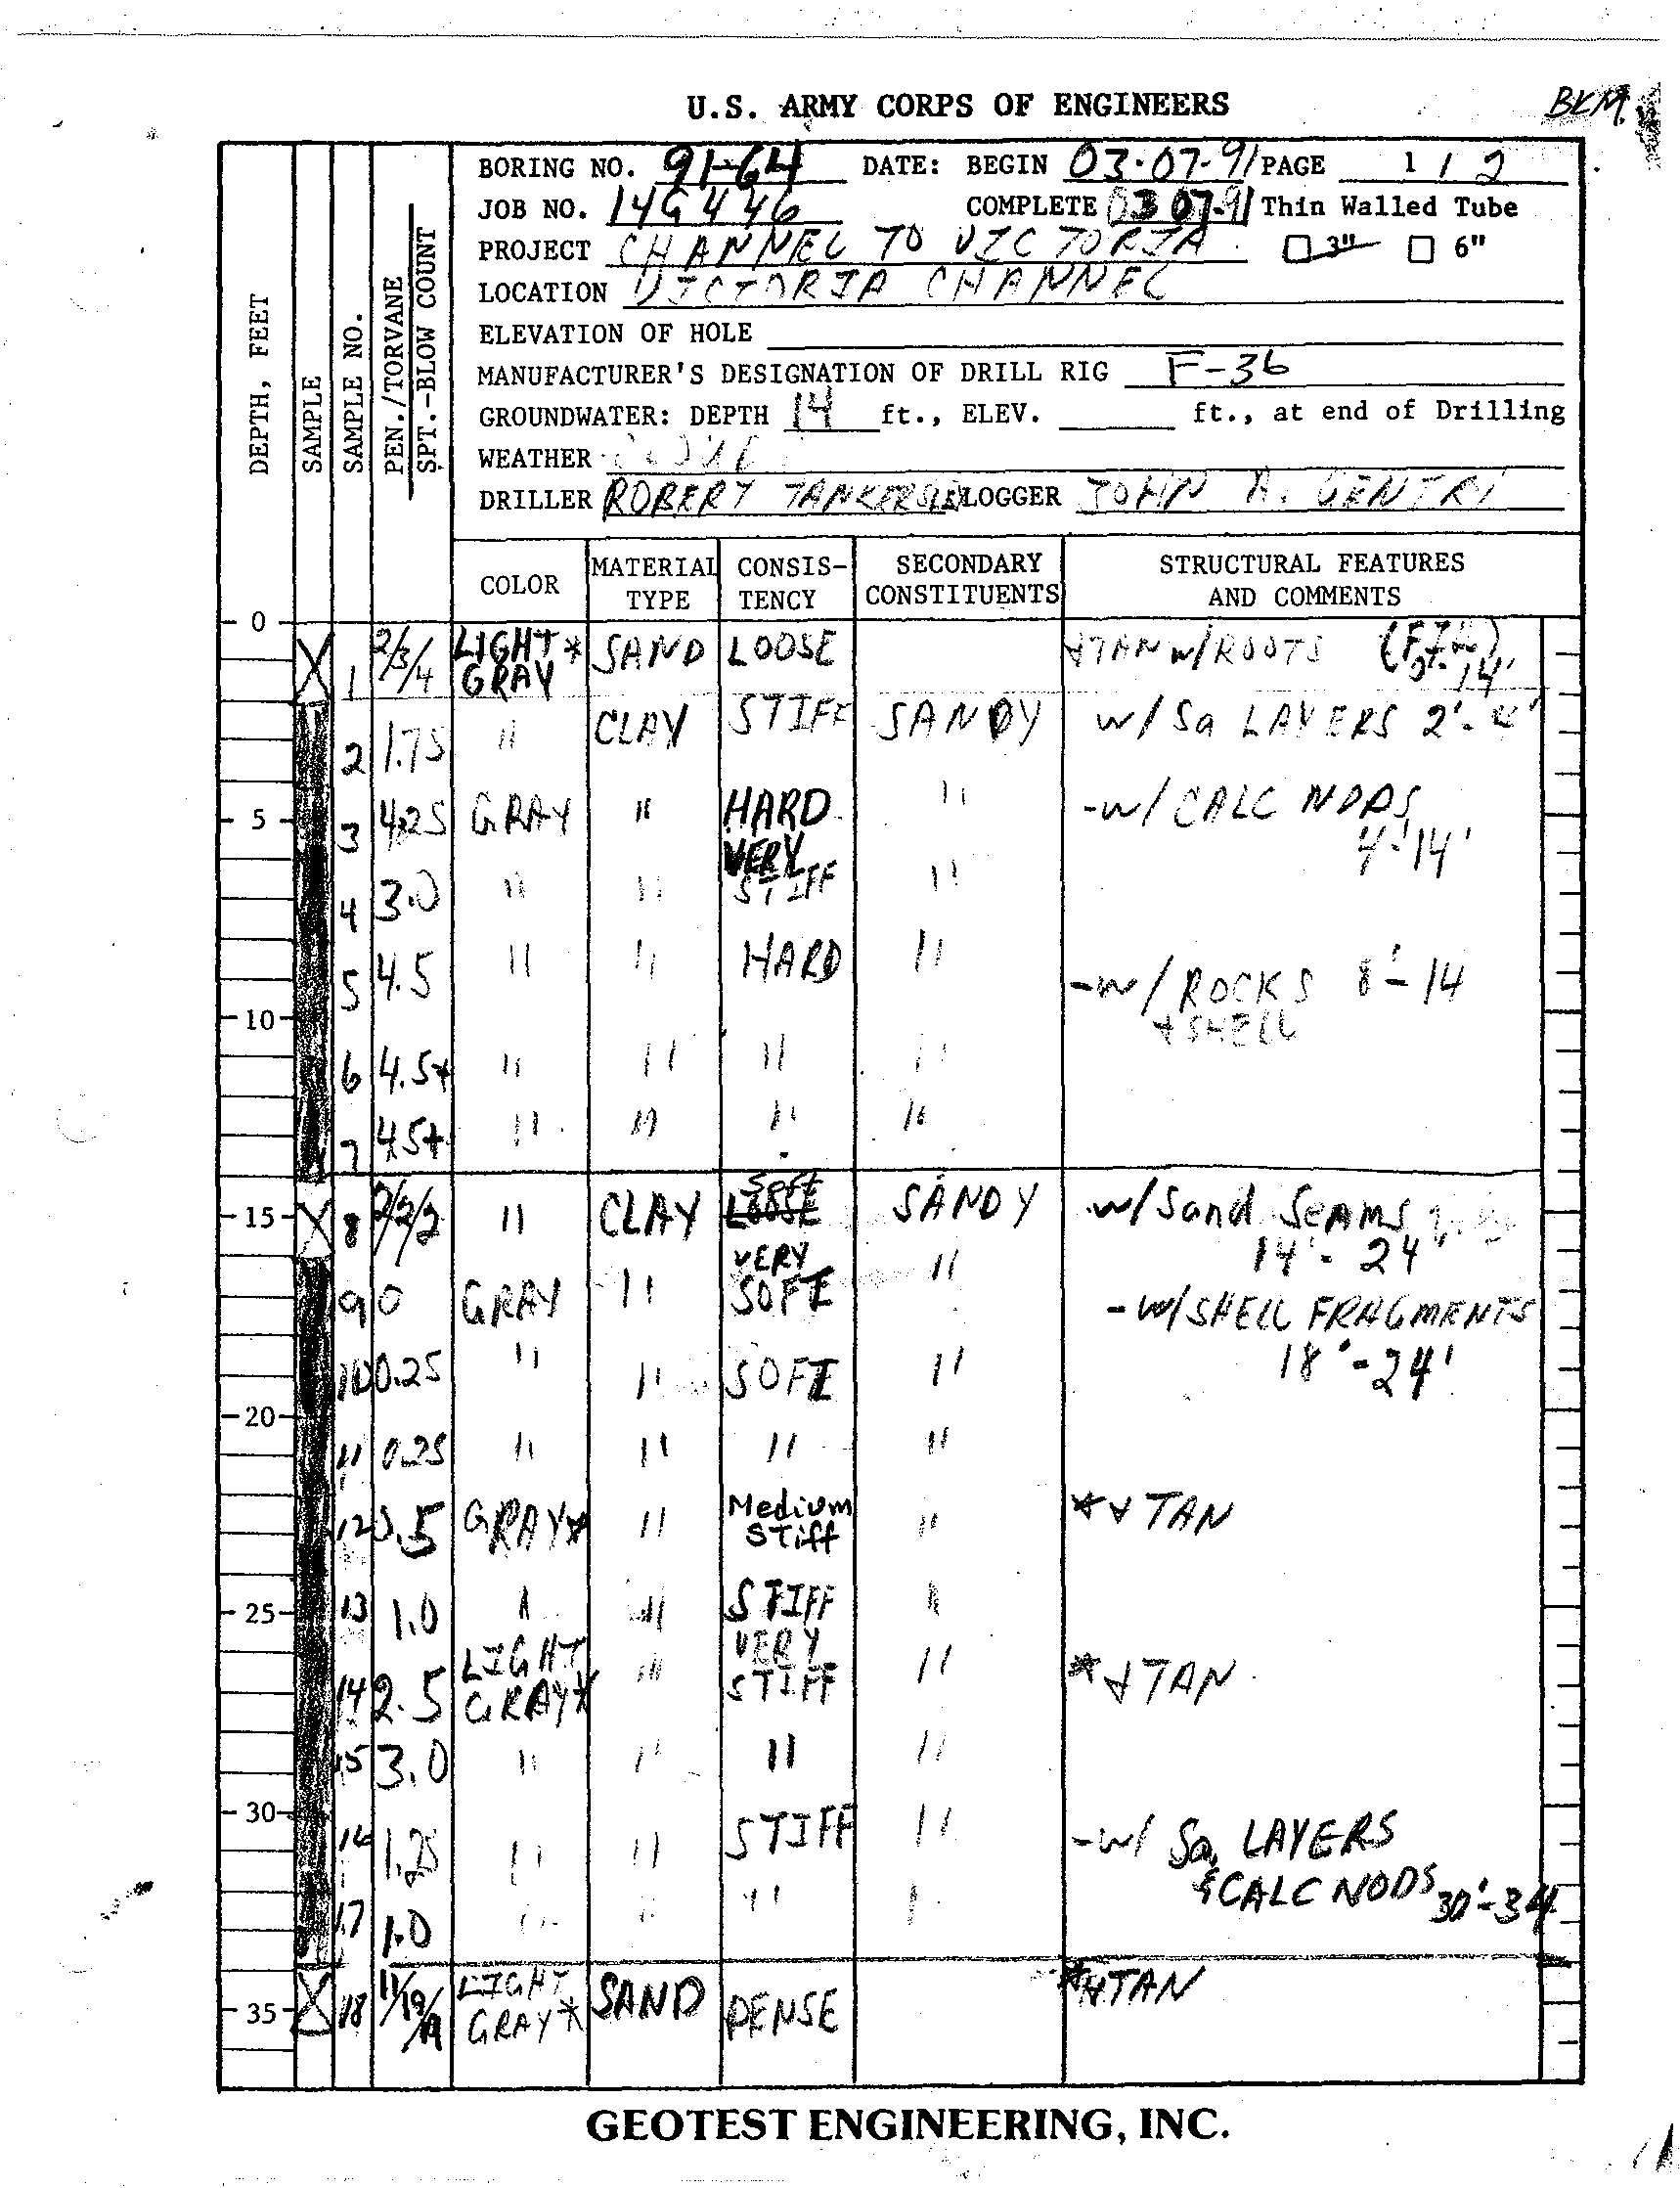 U.S. ARMY CORPS OF ENGINEERS
BKM.
BORING NO. 91-64 DATE: BEGIN 03-07-91 PAGE 1 / 2
JOB NO. 14G446 COMPLETE 03 07-91 Thin Walled Tube
PROJECT CHANNEL TO VICTORIA 3" 6"
LOCATION VICTORIA CHANNEL
ELEVATION OF HOLE
MANUFACTURER'S DESIGNATION OF DRILL RIG F-36
GROUNDWATER: DEPTH 14 ft., ELEV. ft., at end of Drilling
WEATHER
DRILLER ROBERT LOGGER JOHN A. GENTRY
DEPTH, FEET
SAMPLE
SAMPLE NO.
PEN./TORVANE
SPT.-BLOW COUNT
COLOR MATERIAL TYPE CONSIS-TENCY SECONDARY CONSTITUENTS STRUCTURAL FEATURES AND COMMENTS
0
1 2/3/4 LIGHT GRAY * SAND LOOSE & TAN W/ROOTS (FILL) 0'-14'
2 1.75 " CLAY STIFF SANDY w/ Sa LAYERS 2'-4'
5
3 4.25 GRAY " HARD " -w/ CALC NODS 4'-14'
4 3.0 " " VERY STIFF "
5 4.5 " " HARD " -w/ ROCKS 8'-14
& SHELL
10
6 4.5+ " " " "
7 4.5+ " " " "
15
8 2/2/2 " CLAY Soft LOOSE SANDY w/ Sand SEAMS
14'-24'
9 0 GRAY " VERY SOFT " -W/SHELL FRAGMENTS
18'-24'
10 0.25 " " SOFT "
20
11 0.25 " " " "
12 0.5 GRAY* " Medium Stiff " *& TAN
25
13 1.0 " " STIFF "
14 2.5 LIGHT GRAY* " VERY STIFF " *& TAN
15 3.0 " " " "
30
16 1.25 " " STIFF " -w/ Sa, LAYERS
& CALC NODS 30'-34'
17 1.0 " " " "
35
18 11/19/19 LIGHT GRAY* SAND DENSE *& TAN
GEOTEST ENGINEERING, INC.